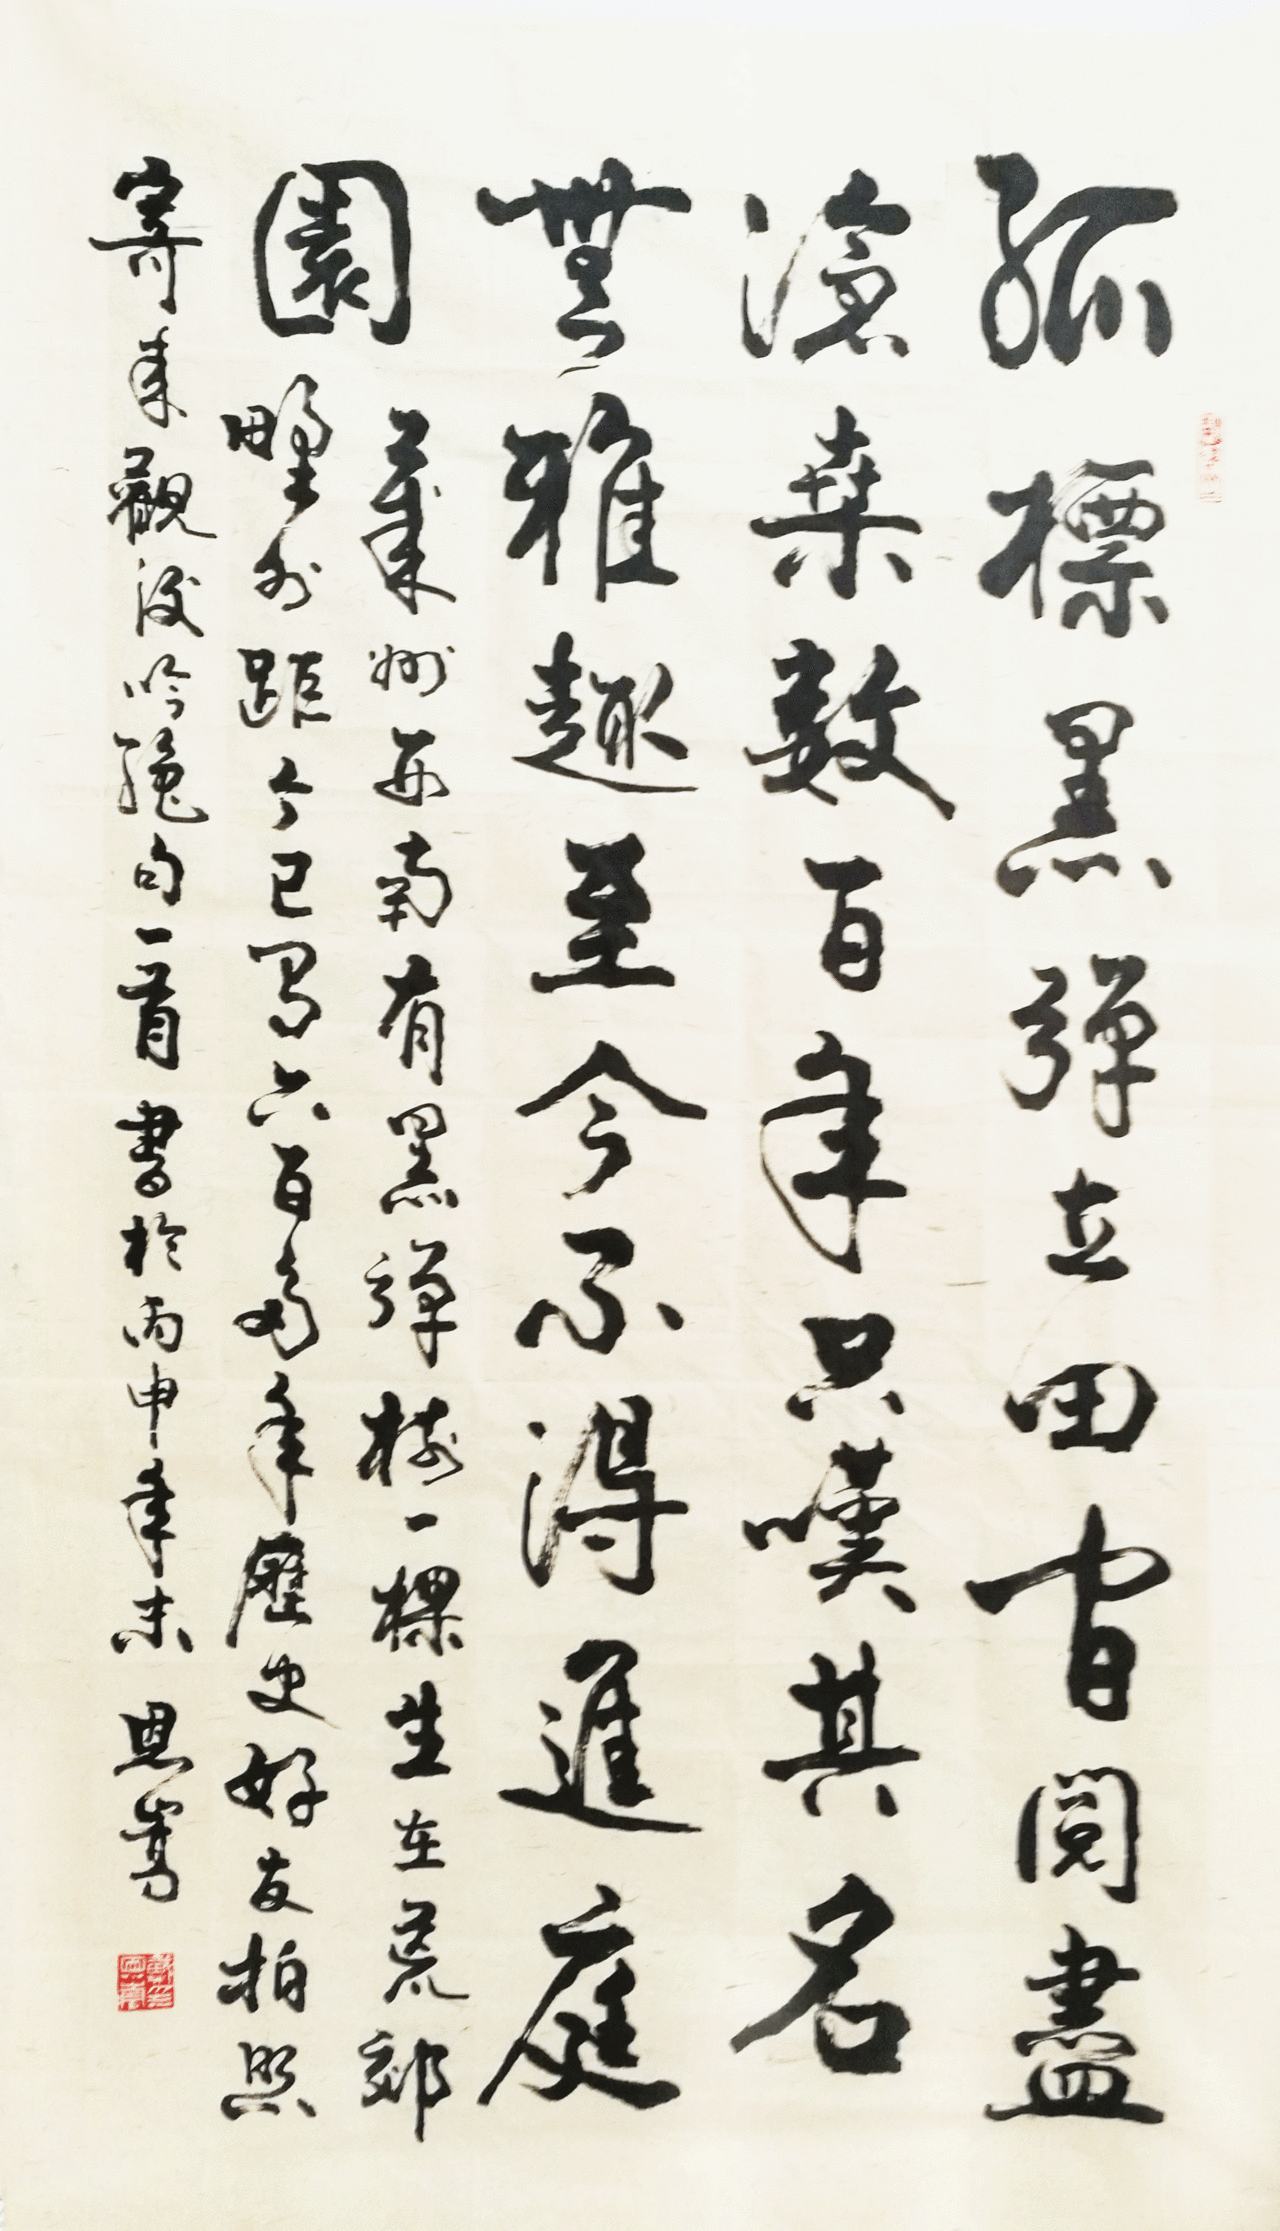 孤標黑彈立田間閱盡
滄桑數百年只嘆其名
無雅趣至今不得進庭
園
萊州西南有黑彈樹一棵生在荒郊
野外距今已有六百多年歷史好友拍照
寄來觀後吟絕句一首書於丙申年末 恩嵩